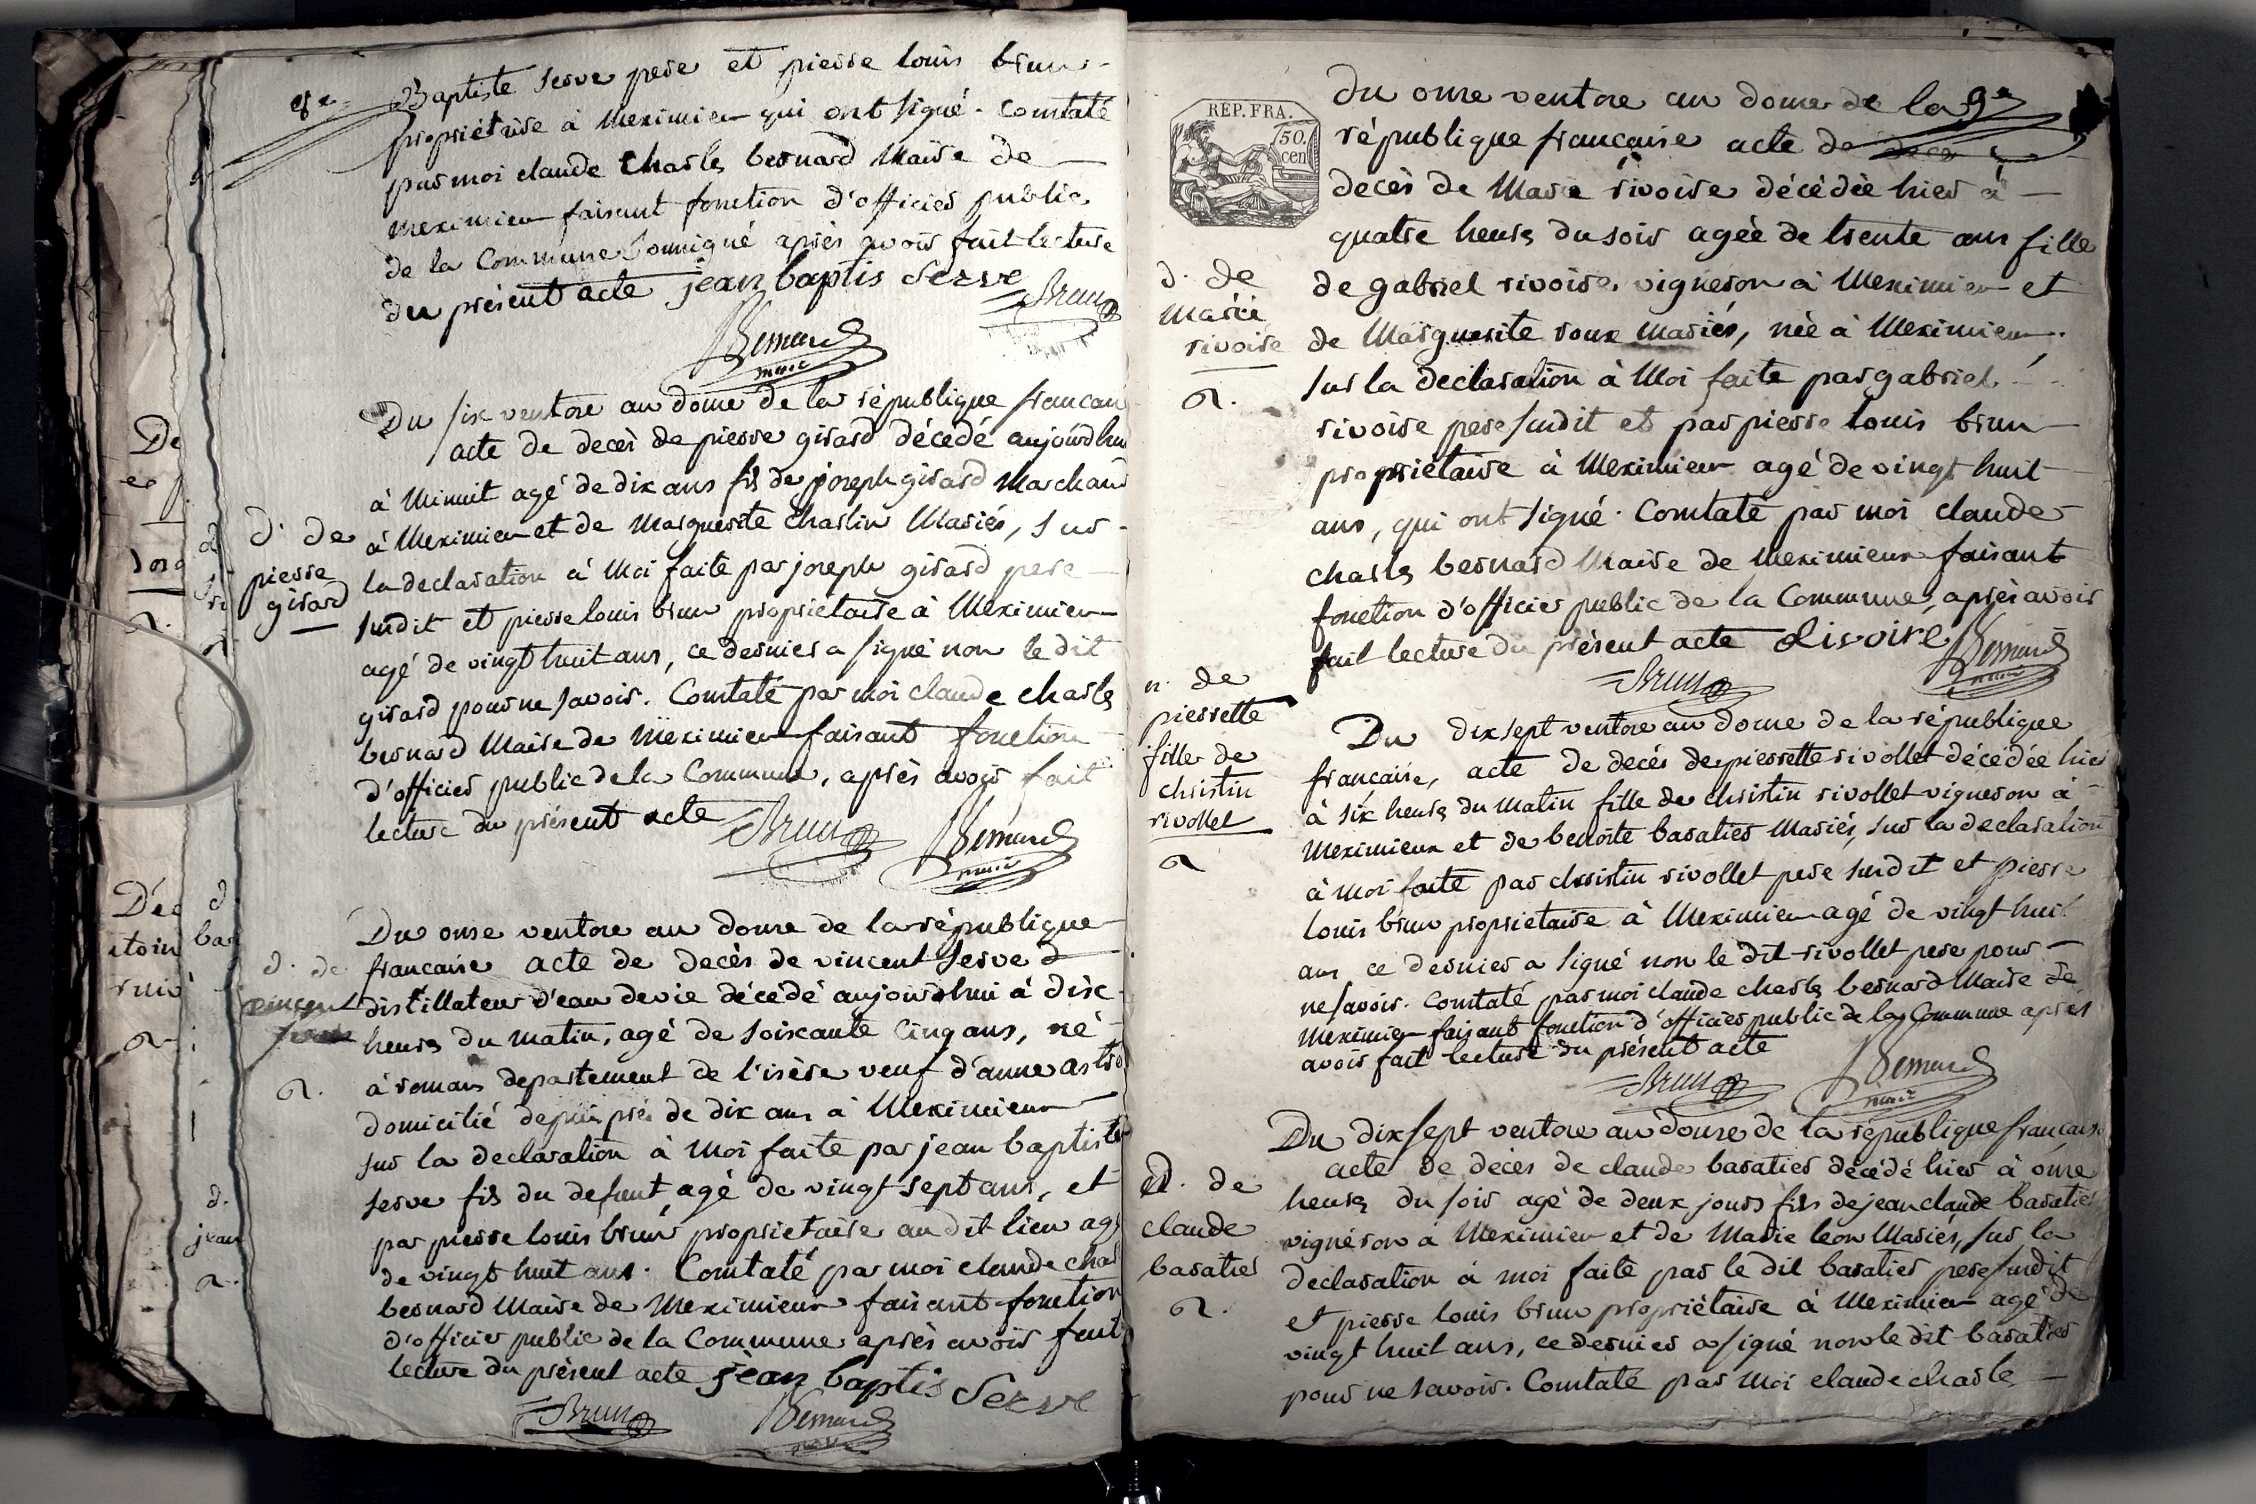 8e
Baptiste serve pere et pierre louis brun
propriétaire à Meximieu qui ont signé. Constaté
par moi claude Charles bernard Maire de
meximieu faisant fonction d'officier public
de la Commune soussigné après avoir fait lecture
du présent acte jean baptis Serve
Brun
Bernard
maire
Du six ventose an douze de la république francaise
acte de decès de pierre girard décedé aujourdhui
à Minuit agé de dix ans fils de joseph girard Marchand
d. de
pierre
girard
à Meximieu et de Marguerite Charlin Mariés, sur
la declaration à Moi faite par joseph girard pere
susdit et pierre louis brun proprietaire à Meximieu
agé de vingt huit ans, ce dernier a signé non le dit
girard pour ne savoir. Constaté par moi claude charles
bernard Maire de Meximieu faisant fonction
d'officier public de la Commune, après avoir fait
lecture du présent acte
Brun
Bernard
maire
Du onse ventose an douse de la république
d. de
vincent
serve
francaise acte de decès de vincent Serve d
distillateur d'eau de vie décédé aujourdhui à dix
heures du matin, agé de soixante cinq ans, né
à romans departement de l'isère veuf d'anne
domicilié depuis près de dix ans à Meximieux
sur la declaration à Moi faite par jean baptiste
serve fils du defunt agé de vingt sept ans, et
par pierre louis brun proprietaire au dit lieu agé
de vingt huit ans. Constaté par moi claude char
bernard Maire de Meximieux faisant fonction
d'officier public de la Commune après avoir fait
lecture du présent acte jean baptis Serve
Brun
Bernard
maire
RÉP. FRA.
50.
cen
Du onse ventose an douse de la 9e
république française acte de
decès de Marie rivoire décédée hier à
quatre heures du soir agée de trente ans fille
d. de
Marie
rivoire
de gabriel rivoire, vigneron à Meximieu et
de Marguerite roux mariés, née à Meximieu.
sur la declaration à Moi faite par gabriel
rivoire pere susdit et par pierre louis brun
propriétaire à Meximieu agé de vingt huit
ans, qui ont signé. Constaté par moi claude
charles bernard Maire de Meximieux faisant
fonction d'officier public de la Commune, après avoir
fait lecture du présent acte Rivoire
Brun
Bernard
maire
n. de
pierrette
fille de
christin
rivollet
Du dix sept ventose an douse de la république
francaise, acte de decés de pierrette rivollet décédée hier
à six heures du matin fille de christin rivollet vigneron à
Meximieux et de benoite baratier Mariés, sur la declaration
à moi faite par christin rivollet pere susdit et pierre
louis brun proprietaire à Meximieu agé de vingt huit
ans ce dernier a signé non le dit rivollet pere pour
ne savoir. Constaté par moi claude charles bernard Maire de
Meximieu faisant fonction d'officier public de la Commune après
avoir fait lecture du présent acte
Brun
Bernard
maire
Du dix sept ventose an douse de la république francaise
acte de decès de claude baratier décédé hier à onse
d. de
claude
baratier
heures du soir agé de deux jours fils de jean claude baratier
vignéron à Meximieu et de Marie leon Mariés, sur la
déclaration à moi faite par le dit baratier pere susdit
et pierre louis brun propriétaire à Meximieu agé de
vingt huit ans, ce dernier a signé non le dit baratier
pour ne savoir. Constaté par Moi claude charles